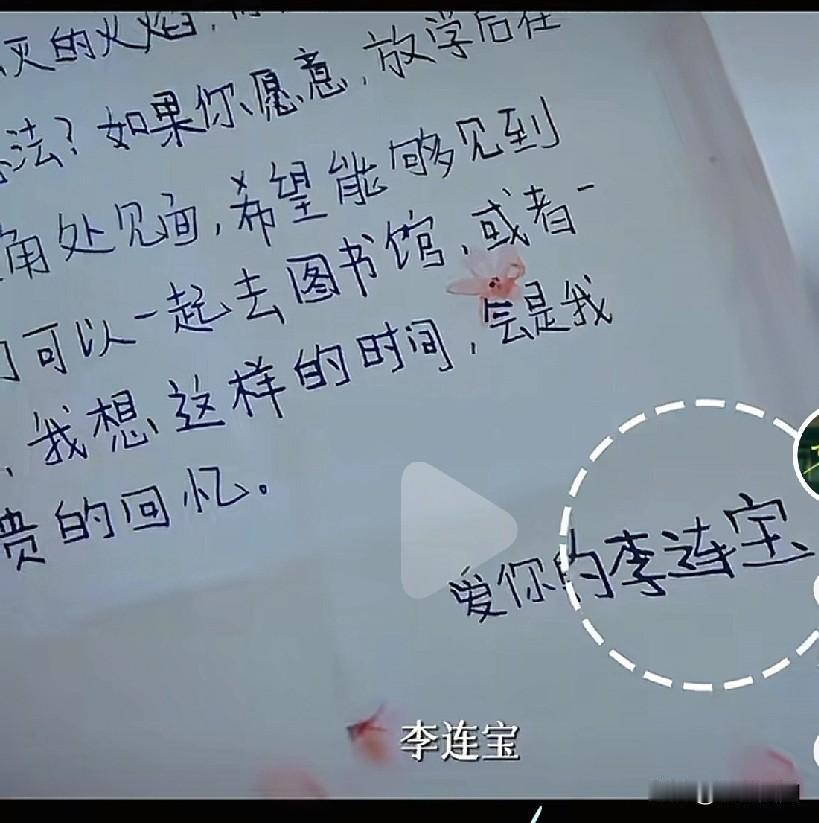 灭的火焰,
法?如果你愿意,放学后在
角处见面,希望能够见到
可以一起去图书馆,或者一
,我想这样的时间,会是我
贵的回忆。
爱你的李连宝
李连宝